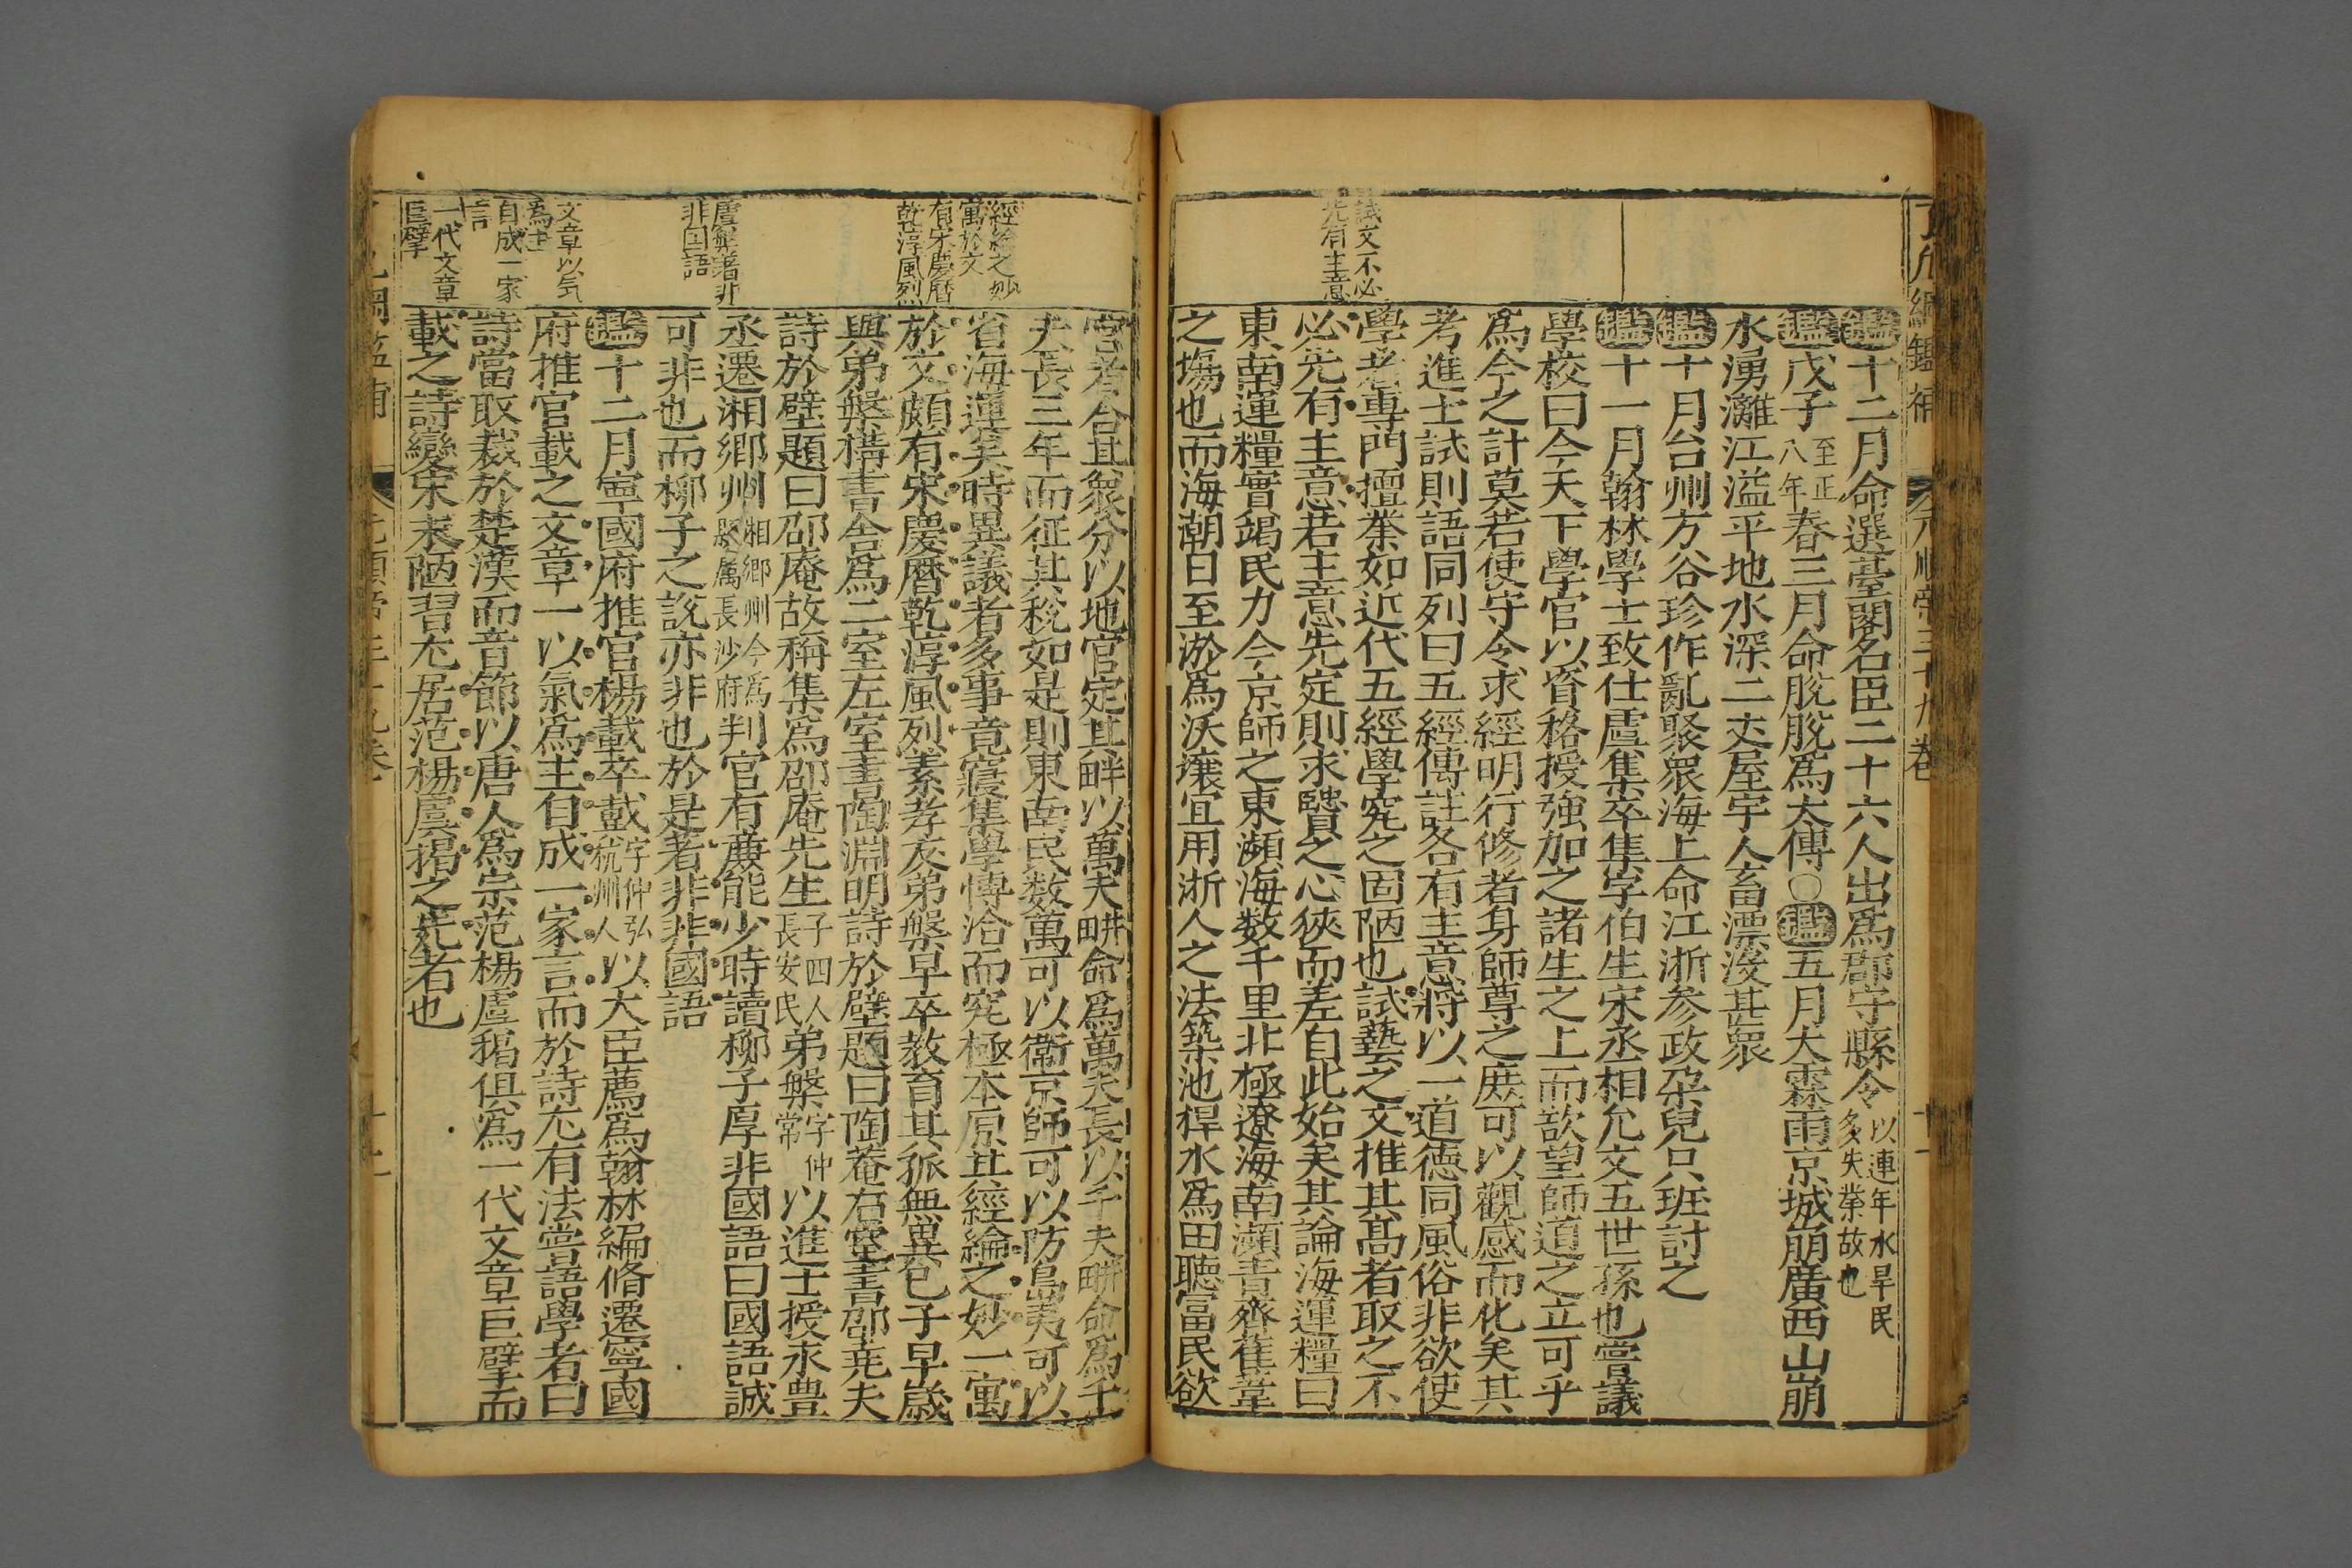 試文不必
先有主意
鑑十二月命選臺閣名臣二十六人出爲郡守縣令以連年水旱民多失業故也
鑑戊子至正八年春三月命脫脫爲太傅○鑑五月大霖雨京城崩廣西山崩
水湧灕江溢平地水深二丈屋宇人畜漂没甚衆
鑑十月台州方谷珍作亂聚衆海上命江浙参政朶兒只班討之
鑑十一月翰林學士致仕虞集卒集字伯生宋丞相允文五世孫也嘗議
學校曰今天下學官以資格授強加之諸生之上而欲望師道之立可乎
爲今之計莫若使守令求經明行修者身師尊之庶可以觀感而化矣其
考進士試則語同列曰五經傳註各有主意將以一道德同風俗非欲使
學者專門擅業如近代五經學究之固陋也試藝之文推其髙者取之不
必先有主意若主意先定則求賢之心狹而差自此始矣其論海運糧曰
東南運糧實竭民力今京師之東瀕海数千里北極遼海南瀕青齊萑葦
之塲也而海潮日至淤爲沃壤宜用浙人之法築池捍水爲田聽富民欲
經綸之妙
寓於文
有宋慶曆
乾淳風烈
虞槃著非
非国語
文章以气
爲主
自成一家
言
一代文章
巨擘
官者合其衆分以地官定其畔以萬夫畊命爲萬夫長以千夫畊命爲千
夫長三年而征其稅如是則東南民数萬可以衛京師可以防島夷可以
省海運矣時異議者多事竟寢集學博洽而究極本原其經綸之妙一寓
於文頗有宋慶曆乾淳風烈素孝友弟槃早卒教育其孤無異已子早歳
與弟槃構書舍爲二室左室書陶淵明詩於壁題曰陶菴右室書邵尭夫
詩於壁題曰邵庵故稱集爲邵庵先生子四人長安民弟槃字仲常以進士授永豊
丞遷湘鄉州湘郷州今爲縣属長沙府判官有亷能少時讀柳子厚非國語曰國語誠
可非也而柳子之說亦非也於是著非非國語
鑑十二月寧國府推官楊載卒載字仲弘杭州人以大臣薦爲翰林編脩遷寧國
府推官載之文章一以氣爲主自成一家言而於詩尤有法嘗語學者曰
詩當取裁於楚漢而音節以唐人爲宗范楊虞揭俱爲一代文章巨擘而
載之詩變宋末陋習尤居范楊虞揭之先者也